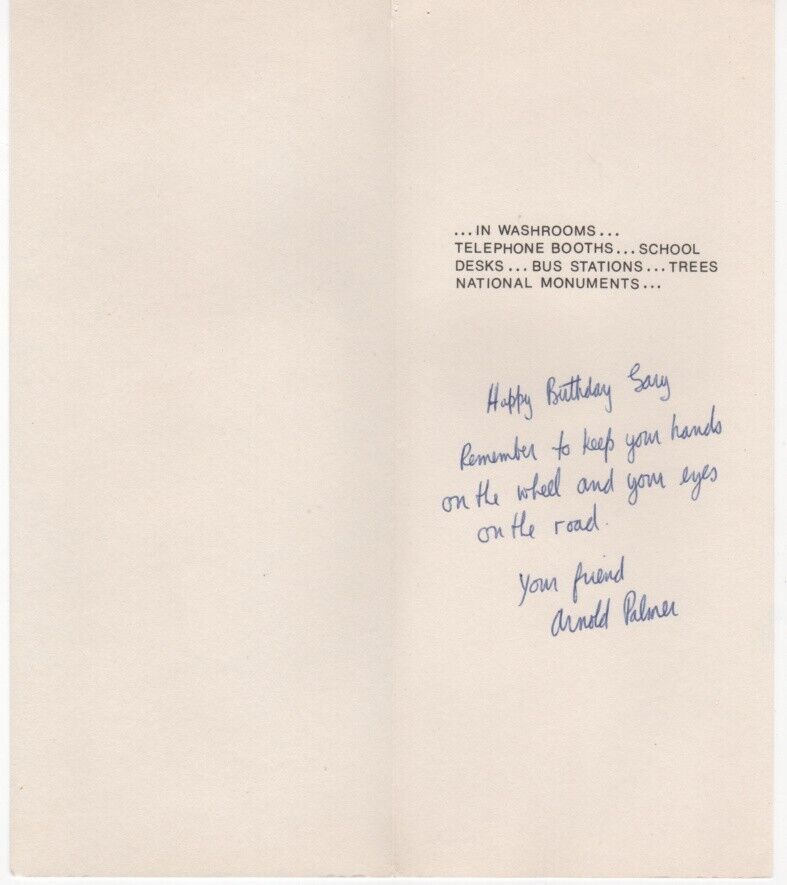 ...IN WASHROOMS...
TELEPHONE BOOTHS...SCHOOL
DESKS...BUS STATIONS...TREES
NATIONAL MONUMENTS...
Happy Birthday Gary
Remember to keep your hands
on the wheel and your eyes
on the road.
Your friend
Arnold Palmer